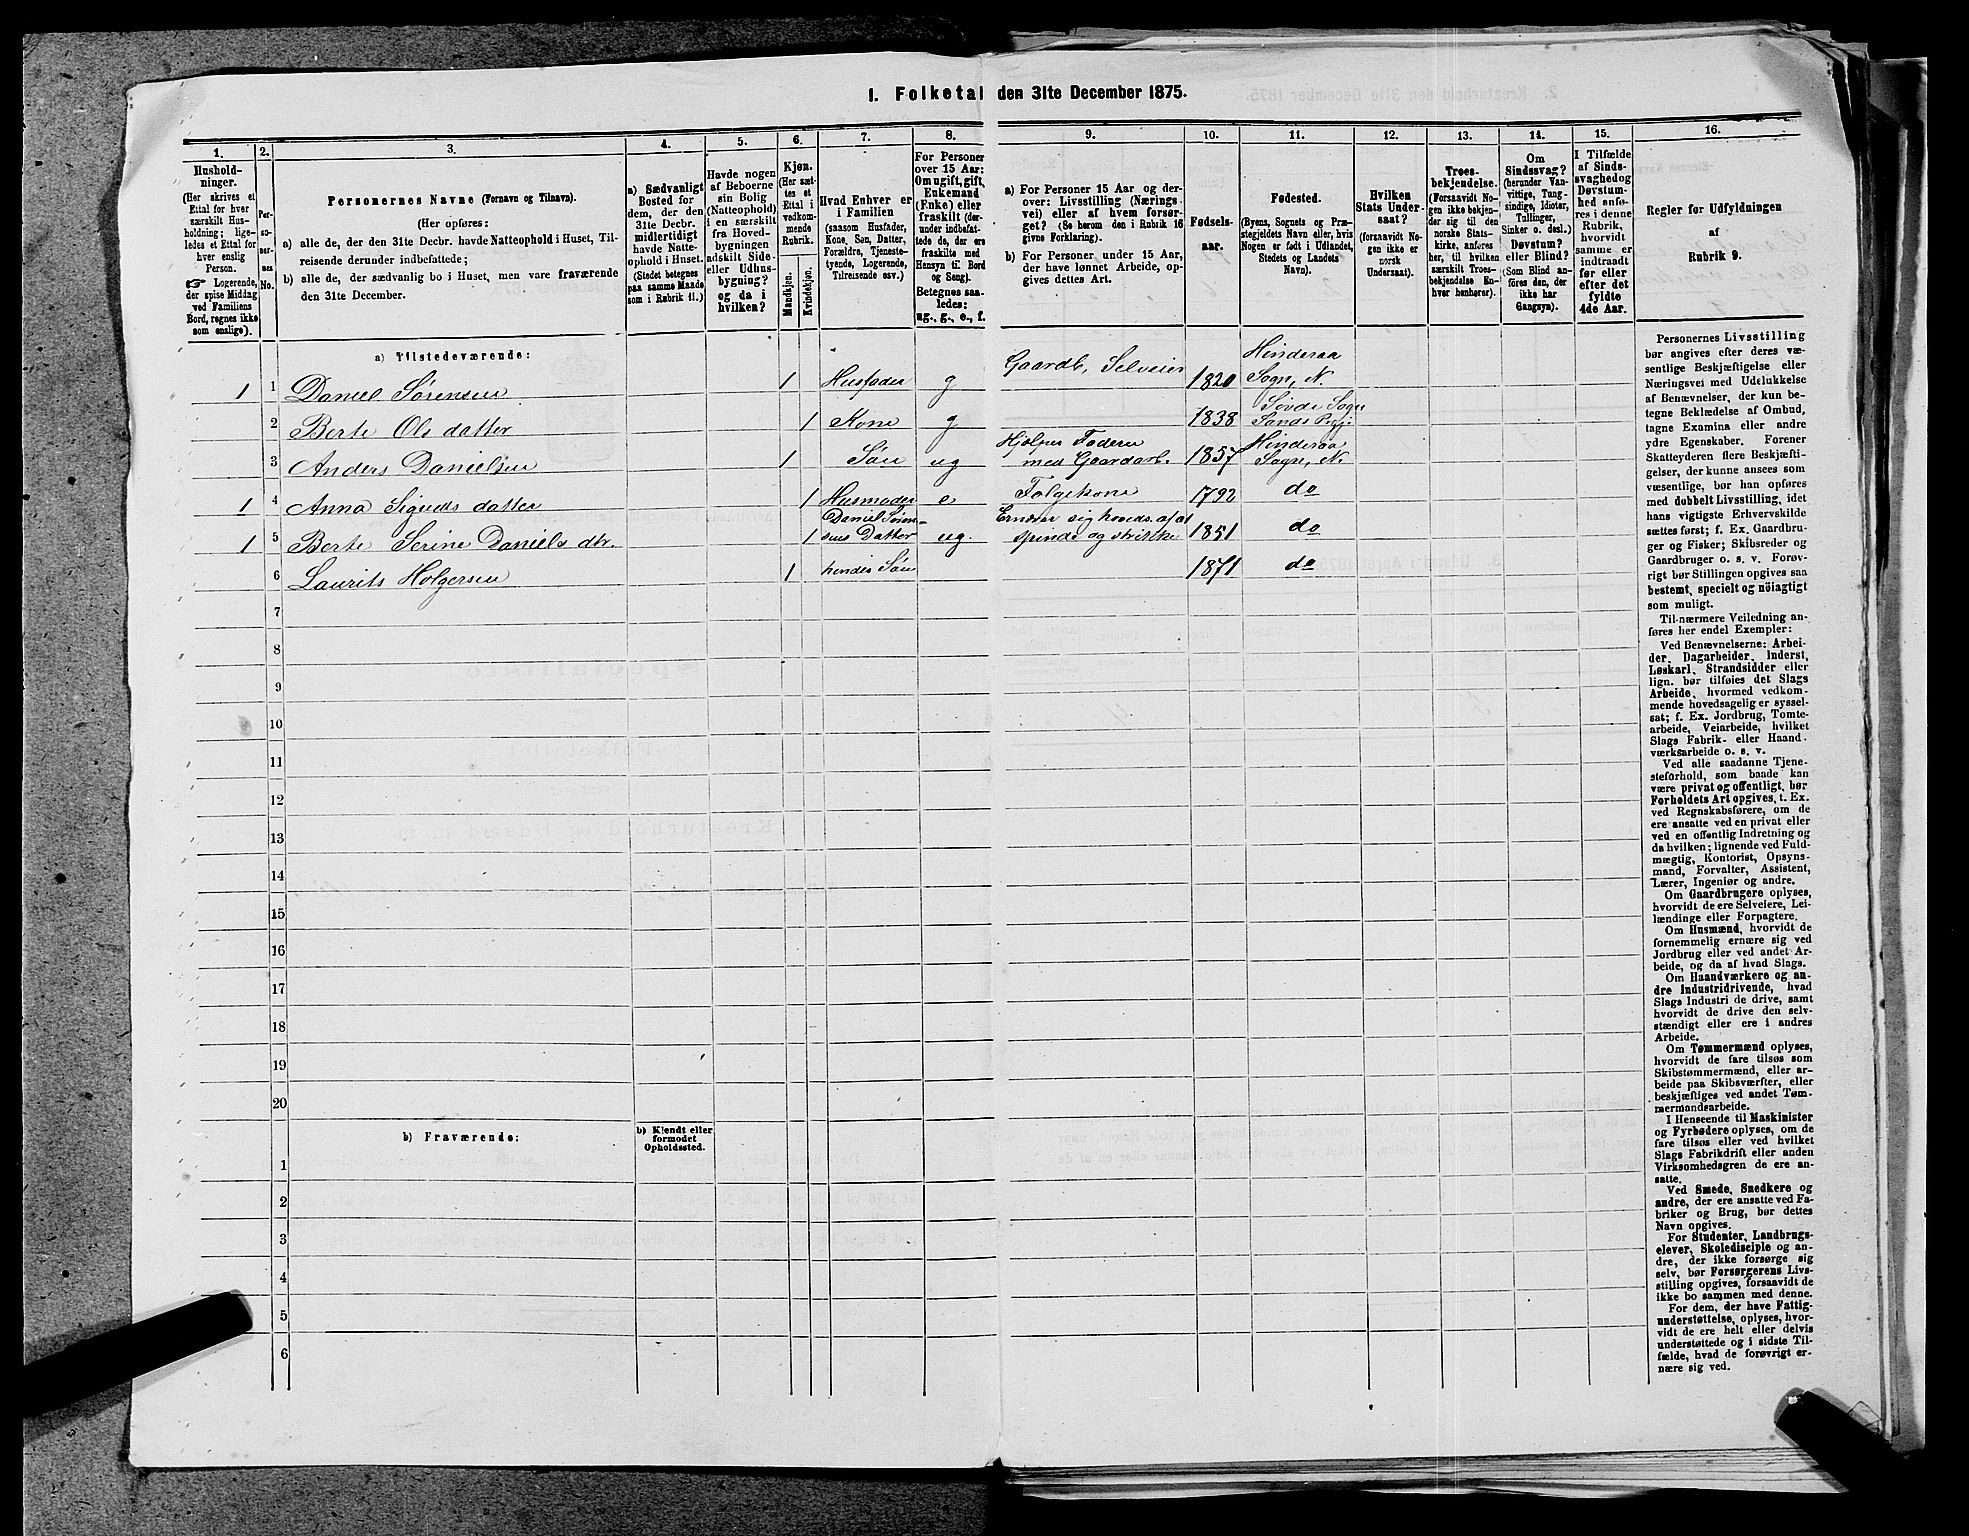 1. Folketal den 31te December 1875.
1. 2. 3. 4. 5. 6. 7. 8. 9. 10. 11. 12. 13. 14. 15. 16.
Hushold-
ninger.
(Her skrives et
Ettal for hver
særskilt Hus-
holdning; lige-
ledes et Ettal for
hver enslig
Person.
☞ Logerende,
der spise Middag
ved Familiens
Bord, regnes ikke
som enslige).
Per-
so-
ner-
nes
No.
Personernes Navne (Fornavn og Tilnavn).
(Her opføres:
a) alle de, der den 31te Decbr. havde Natteophold i Huset, Til-
reisende derunder indbefattede;
b) alle de, der sædvanlig bo i Huset, men vare fraværende
den 31te December.
a) Sædvanligt
Bosted for
dem, der den
31te Decbr.
midlertidigt
havde Natte-
ophold i Huset.
(Stedet betegnes
paa samme Maade
som i Rubrik 11.)
Havde nogen
af Beboerne
sin Bolig
(Natteophold)
i en særskilt
fra Hoved-
bygningen
adskilt Side-
eller Udhus-
bygning?
og da i
hvilken?
Kjøn.
(Her sæt-
tes et
Ettal i
vedkom-
mende
Rubrik.
Mandkjøn.
Kvindekjøn.
Hvad Enhver er
i Familien
(saasom Husfader,
Kone, Søn, Datter,
Forældre, Tjeneste-
tyende, Logerende,
Tilreisende osv.)
For Personer
over 15 Aar:
Om ugift, gift,
Enkemand
(Enke) eller
fraskilt (der-
under indbefat-
tede de, der ere
fraskilte med
Hensyn til Bord
og Seng).
Betegnes saa-
ledes:
ug., g., e., f.
a) For Personer 15 Aar og der-
over: Livsstilling (Nærings-
vei) eller af hvem forsør-
get? (Se herom den i Rubrik 16
givne Forklaring).
b) For Personer under 15 Aar,
der have lønnet Arbeide, op-
gives dettes Art.
Fødsels-
aar.
Fødested.
(Byens, Sognets og Præ-
stegjeldets Navn eller, hvis
Nogen er født i Udlandet,
Stedets og Landets
Navn).
Hvilken
Stats Under-
saat?
(forsaavidt No-
gen ikke er
norsk
Undersaat).
Troes-
bekjendelse.
(Forsaavidt No-
gen ikke bekjen-
der sig til den
norske Stats-
kirke, anføres
her, til hvilken
særskilt Troes-
bekjendelse En-
hver henhører).
Om
Sindssvag?
(herunder Van-
vittige, Tung-
sindige, Idioter,
Tullinger,
Sinker o. desl.)
Døvstum?
eller Blind?
(Som Blind an-
føres den, der
ikke har
Gangsyn).
I Tilfælde
af Sinds-
svaghed og
Døvstum-
hed anfø-
res i denne
Rubrik,
hvorvidt
samme er
indtraadt
før eller
efter det
fyldte
4de Aar.
Regler for Udfyldningen
af
Rubrik 9.
a) Tilstedeværende:
1 1 Daniel Sørensen 1 Husfader g Gaardb, Selveier 1820 Hinderaa Sogn, N.
2 Berte Ols datter 1 Kone g 1838 Søvde Sogn Sands Prgj.
3 Anders Danielsen 1 Søn ug Hjælper Faderen med Gaardarb. 1857 Hinderaa Sogn, N.
1 4 Anna Siguds datter 1 Husmoder e Følgekone 1792 do
1 5 Berte Serine Daniels dtr. 1 Daniel Søren- sens Datter ug. Ernærer sig hoveds. af at spinde og strikke 1851 do
6 Laurits Holgersen 1 hendes Søn 1871 do
7
8
9
10
11
12
13
14
15
16
17
18
19
20
b) Fraværende:
b) Kjendt eller
formodet
Opholdssted.
1
2
3
4
5
6
Personernes Livsstilling
bør angives efter deres væ-
sentlige Beskjæftigelse eller
Næringsvei med Udelukkelse
af Benævnelser, der kun be-
tegne Beklædelse af Ombud,
tagne Examina eller andre
ydre Egenskaber. Forener
Skatteyderen flere Beskjæfti-
gelser, der kunne ansees som
væsentlige, bør han opføres
med dobbelt Livsstilling, idet
hans vigtigste Erhvervskilde
sættes først; f. Ex. Gaardbru-
ger og Fisker; Skibsreder og
Gaardbruger o. s. v. Forøv-
rigt bør Stillingen opgives saa
bestemt, specielt og nöiagtigt
som muligt.
Til nærmere Veiledning an-
føres her endel Exempler:
Ved Benævnelserne: Arbei-
der, Dagarbeider, Inderst,
Løskarl, Strandsidder eller
lign. bør tilføies det Slags
Arbeide, hvormed vedkom-
mende hovedsagelig er syssel-
sat; f. Ex. Jordbrug, Tomte-
arbeide, Veiarbeide, hvilket
Slags Fabrik- eller Haand-
værksarbeide o. s. v.
Ved alle saadanne Tjene-
steforhold, som baade kan
være privat og offentligt, bør
Forholdets Art opgives, t. Ex.
ved Regnskabsførere, om de
ere ansatte ved en privat eller
ved en offentlig Indretning og
da hvilken; lignende ved Fuld-
mægtig, Kontorist, Opsyns-
mand, Forvalter, Assistent,
Lærer, Ingeniør og andre.
Om Gaardbrugere oplyses,
hvorvidt de ere Selveiere, Lei-
lændinge eller Forpagtere.
Om Husmænd, hvorvidt de
fornemmelig ernære sig ved
Jordbrug eller ved andet Ar-
beide, og da af hvad Slags.
Om Haandværkere og an-
dre Industridrivende, hvad
Slags Industri de drive, samt
hvorvidt de drive den selv-
stændigt eller ere i andres
Arbeide.
Om Tømmermænd oplyses,
hvorvidt de fare tilsøs som
Skibstømmermænd, eller ar-
beide paa Skibsværfter, eller
beskjæftiges ved andet Tøm-
mermandsarbeide.
I Henseende til Maskinister
og Fyrbødere oplyses, om de
fare tilsøs eller ved hvilket
Slags Fabrikdrift eller anden
Virksomhedsgren de ere an-
satte.
Ved Smede, Snedkere og
andre, der ere ansatte ved Fa-
briker og Brug, bør dettes
Navn opgives.
For Studenter, Landbrugs-
elever, Skoledisciple og an-
dre, der ikke forsørge sig
selv, bør Forsørgerens Livs-
stilling opgives, forsaavidt de
ikke bo sammen med denne.
For dem, der have Fattig-
understøttelse, oplyses, hvor-
vidt de ere helt eller delvis
understøttede og i sidste Til-
fælde, hvad de forøvrigt er-
nære sig ved.